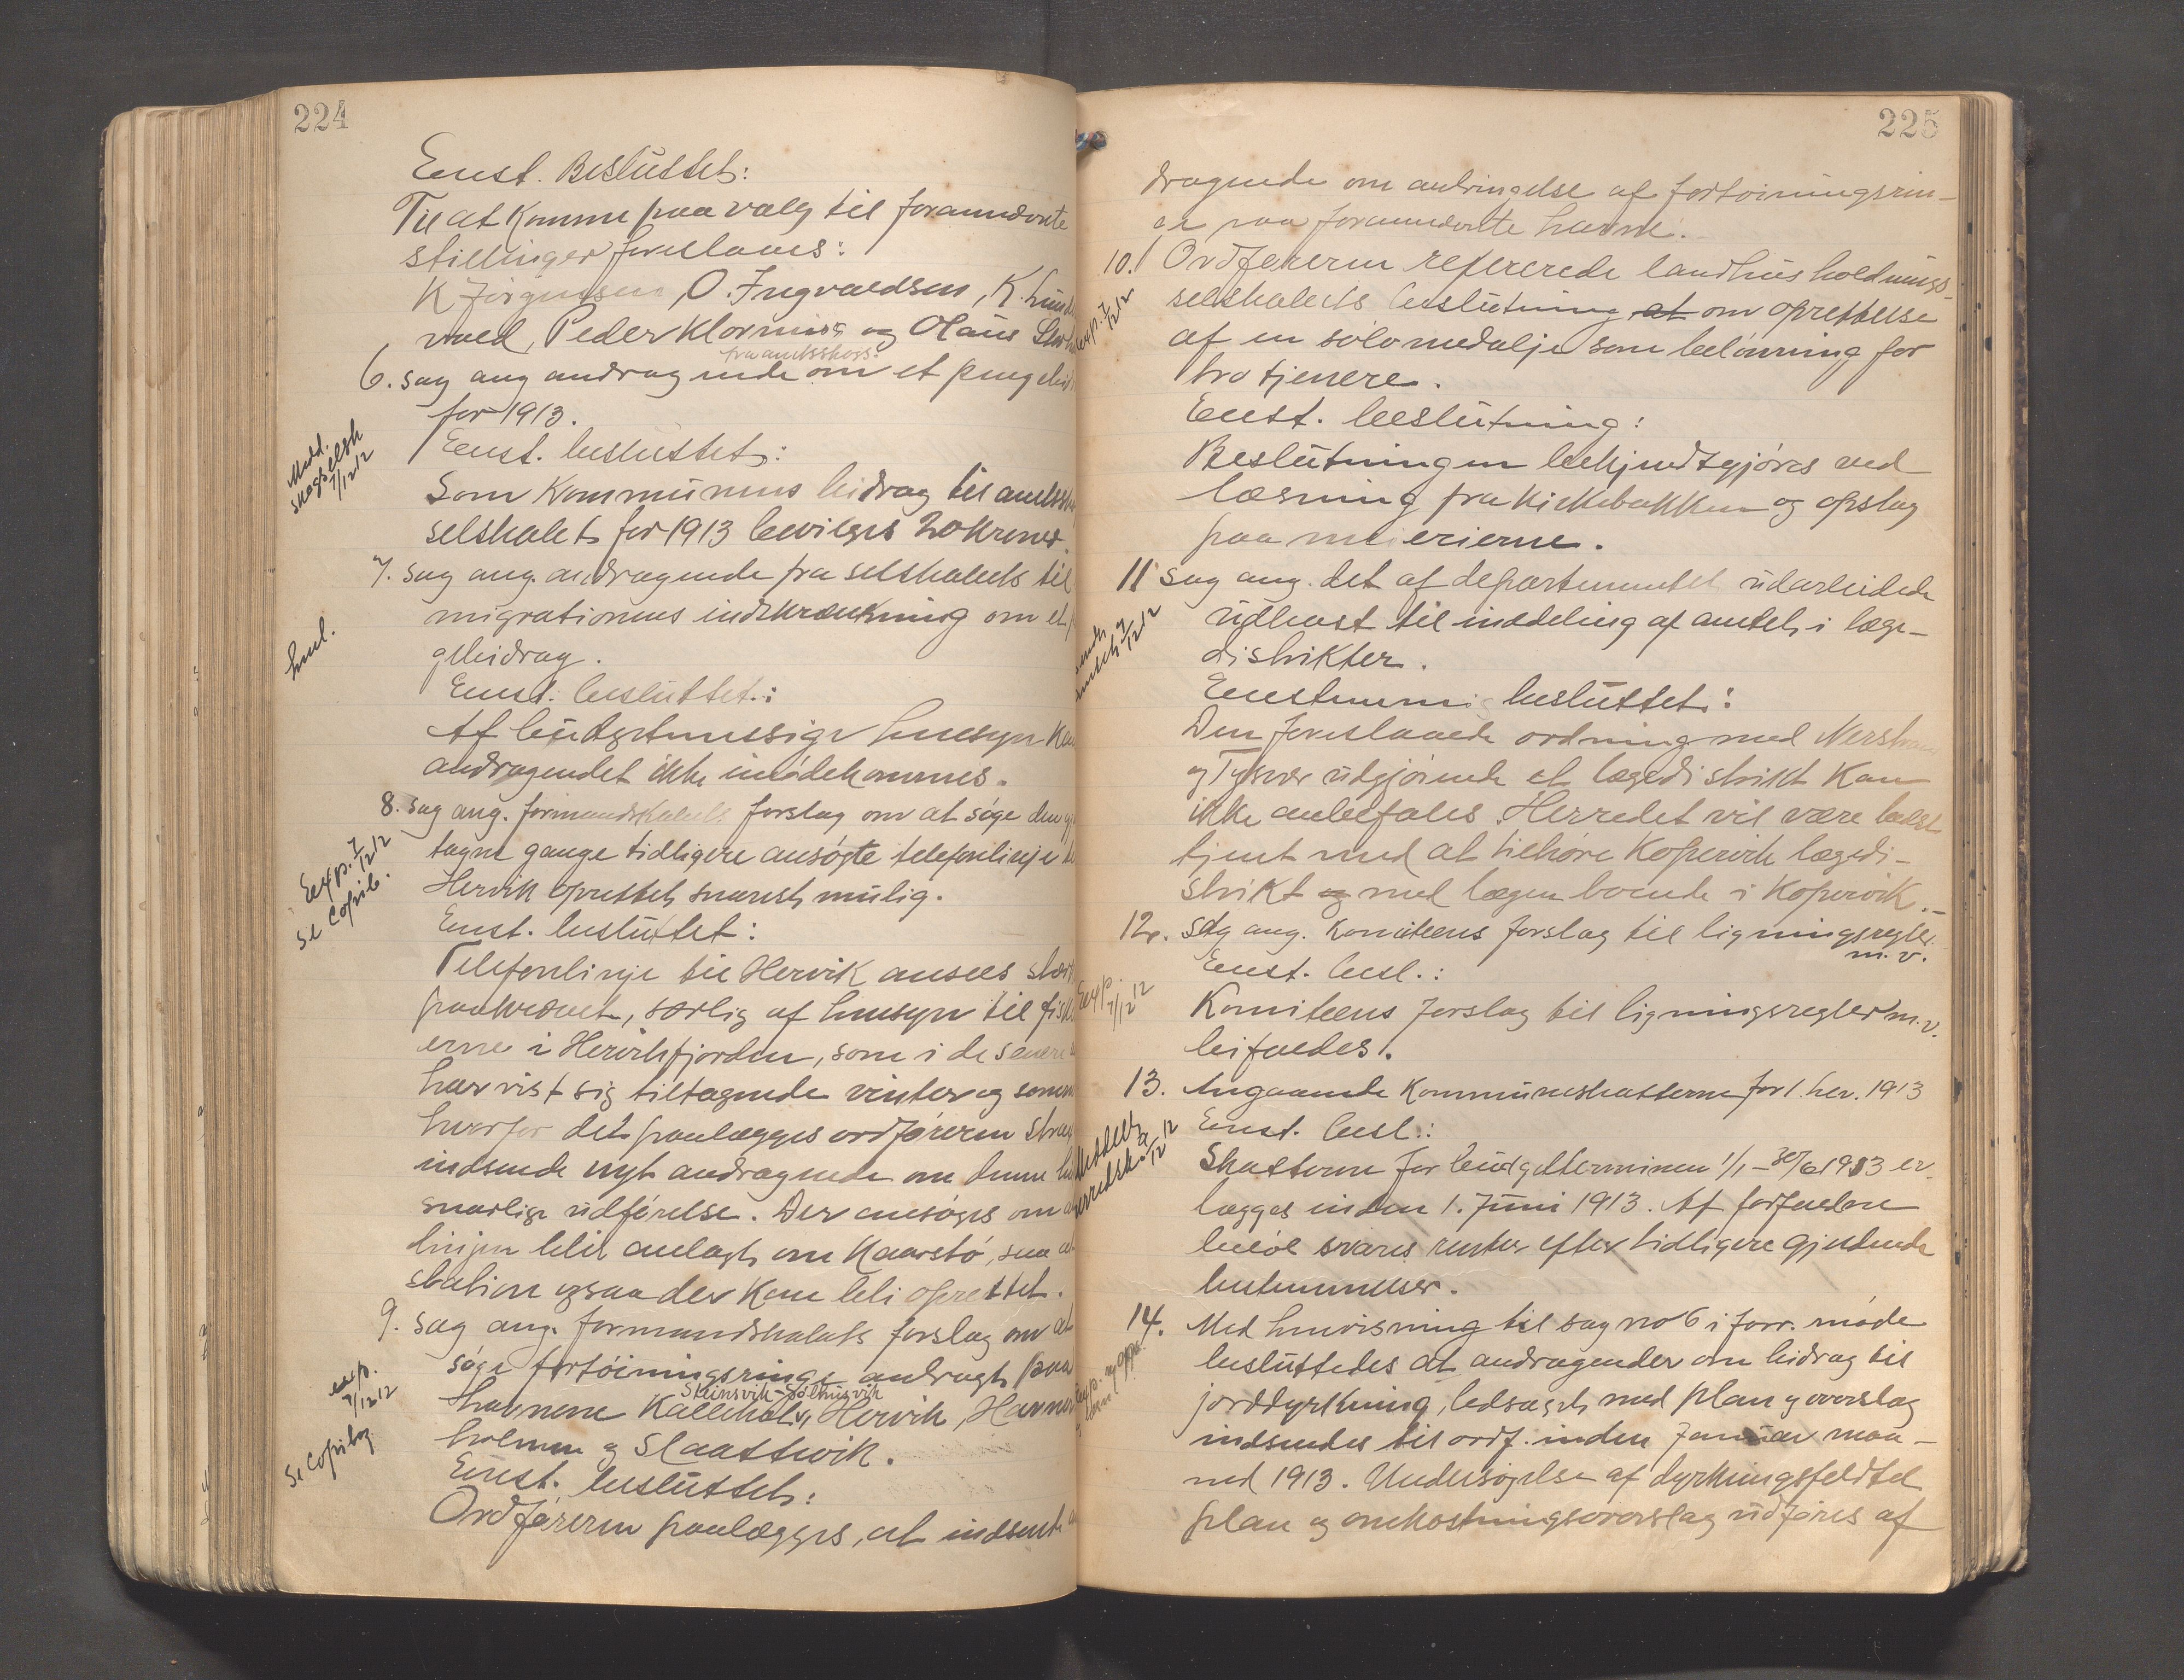 224
Enst. Besluttet:
Til at komme paa valg til forannævnte
stillinger foreslaaes:
K Jørgensen, O. Ingvaldsen, K. Lunde
vold, Peder Klovning og Olaus
fra amtsskogs.
6. Sag ang andragende om et pengebid
for 1913.
Medd.
skogselsk
7/12 12
Enst. besluttet:
Som kommunens bidrag til amtssko
selskabet for 1913 bevilges 20 kroner.
7. Sag ang. andragende fra selskabets til
migrationens indskrænkning om et
gebidrag.
henl.
Enst. besluttet:
Af budgetmessige hensyn kan
andragendet ikke imødekommes.
8. Sag ang. formandskabets forslag om at søge den
tagne gange tidligere ansøgte telefonlinje
Hervik oprettet snarest mulig.
Exp. 7/12 12
Se Copib.
Enst. besluttet:
Telefonlinje til Hervik ansees stær
paakrævet, særlig af hensyn til fiske
erne i Hervikfjorden, som i de senere
har vist sig tiltagende vinter og som
hvorfor det paalægges ordføreren strax
indsende nyt andragende om denne
snarlige udførelse. Der ansøges om
linjen blir anlagt om Kaarstø, saa
station ogsaa der kan bli oprettet.
9. Sag ang. formandskabets forslag om at
søge fortøiningsringe andragt paa
Steinsvik - Sølhusvik
havnene Hervik,
holmen og Slaattevik.
exp.
7/12 12
Se Copibog
Enst. besluttet:
Ordføreren paalægges, at indsende
225
dragende om anbringelse af fortøiningsrin-
ge paa forannævnte havne.
10. Ordføreren refererede landhusholdnings-
selskabets beslutning at om oprettelse
af en sølvmedalje som belønning for
tro tjenere.
exp. 7/12 12
Enst. beslutning:
Beslutningen bekjendtgjøres ved
læsning fra kirkebakken og opslag
paa meierierne.
11 Sag ang. det af departementet udarbeidede
udkast til inddeling af amtet i læge-
distrikter.
Enstemmig besluttet:
Den foreslaaede ordning med Nerstrand
og Tysvær udgjørende et lægedistrikt kan
ikke anbefales. Herredet vil være bedst
tjent med at tilhøre Kopervik lægedi-
strikt og med lægen boende i Kopervik.-
12. Sag ang. komiteens forslag til ligningsregler
m.v.
Enst. besl.:
Exp.
7/12 12
Komiteens forslag til ligningsregler m.v.
bifaldes.
13. Angaaende kommuneskatterne for 1. hev. 1913
Enst. besl.:
Skatterne for budgetterminen 1/1-30/6 1913 er-
lægges inden 1. Juni 1913. Af forfaldne
beløb svares renter efter tidligere gjeldende
bestemmelser.
14. Med henvisning til sag no 6 i forr. møde
besluttedes at andragender om bidrag til
jorddyrkning, ledsaget med plan og overslag
indsendes til ordf. inden Januar maa-
ned 1913. Undersøgelse af dyrkningsfeldtet
plan og omkostningsoverslag udføres af